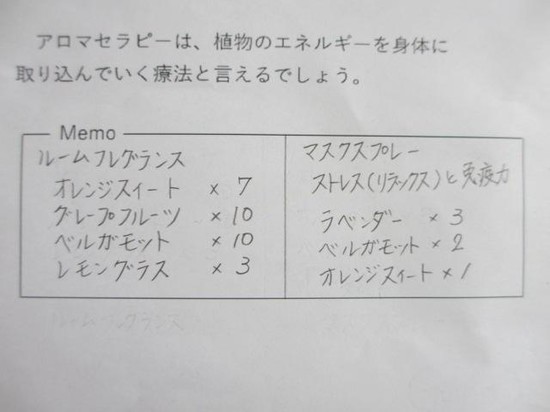 アロマセラピーは、植物のエネルギーを身体に
取り込んでいく療法と言えるでしょう。
Memo
ルームフレグランス
オレンジスイート × 7
グレープフルーツ × 10
ベルガモット × 10
レモングラス × 3
マスクスプレー
ストレス(リラックス)と免疫力
ラベンダー × 3
ベルガモット × 2
オレンジスイート × 1
ルームフレグランス